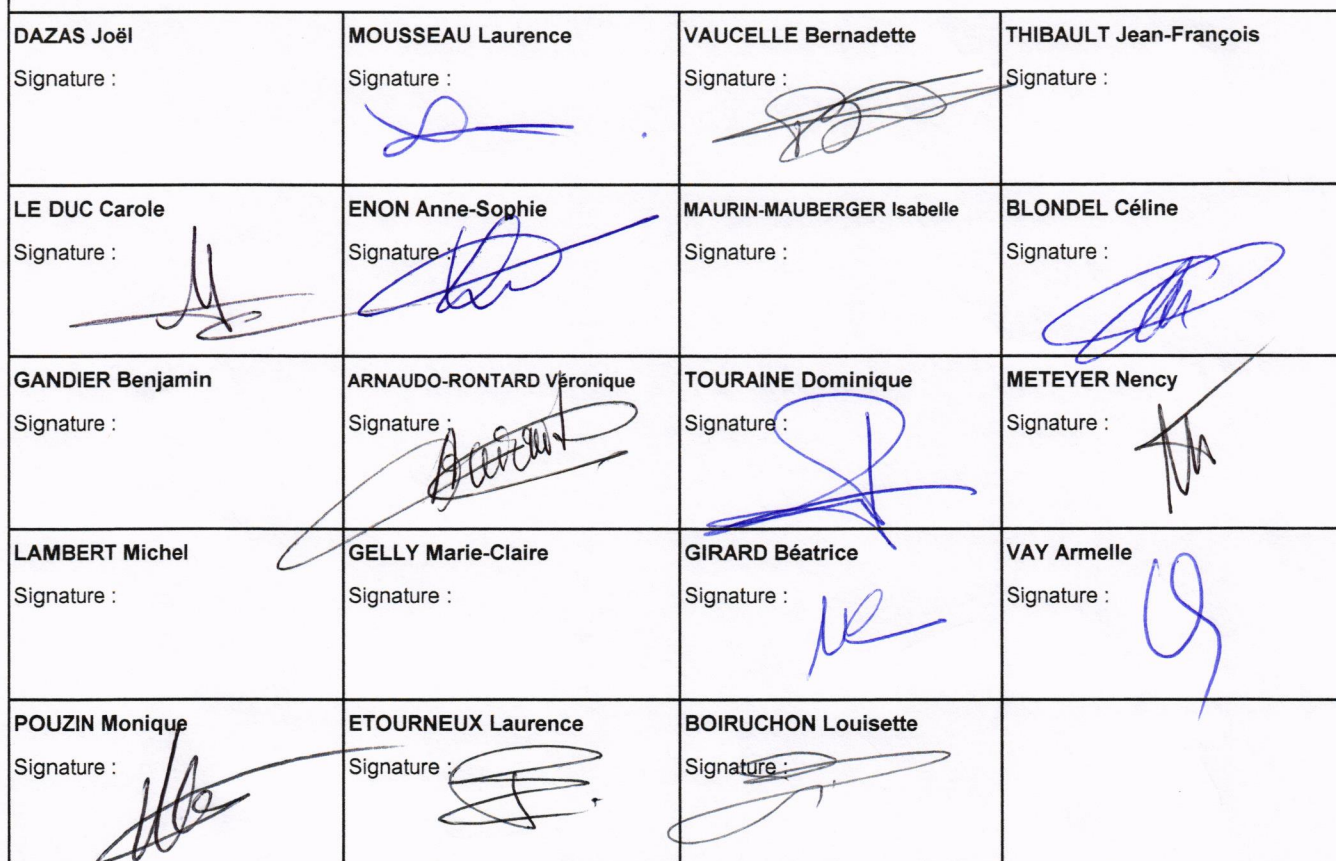 DAZAS Joël
Signature :
MOUSSEAU Laurence
Signature :
VAUCELLE Bernadette
Signature :
THIBAULT Jean-François
Signature :
LE DUC Carole
Signature :
ENON Anne-Sophie
Signature :
MAURIN-MAUBERGER Isabelle
Signature :
BLONDEL Céline
Signature :
GANDIER Benjamin
Signature :
ARNAUDO-RONTARD Véronique
Signature :
TOURAINE Dominique
Signature :
METEYER Nency
Signature :
LAMBERT Michel
Signature :
GELLY Marie-Claire
Signature :
GIRARD Béatrice
Signature :
VAY Armelle
Signature :
POUZIN Monique
Signature :
ETOURNEUX Laurence
Signature :
BOIRUCHON Louisette
Signature :